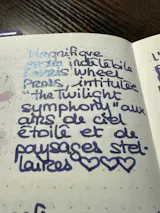 Magnifique
encre indélébile
Ferris Wheel
Press, intitulée
"the Twilight
symphony" aux
airs de ciel
étoilé et de
paysages stel-
laires